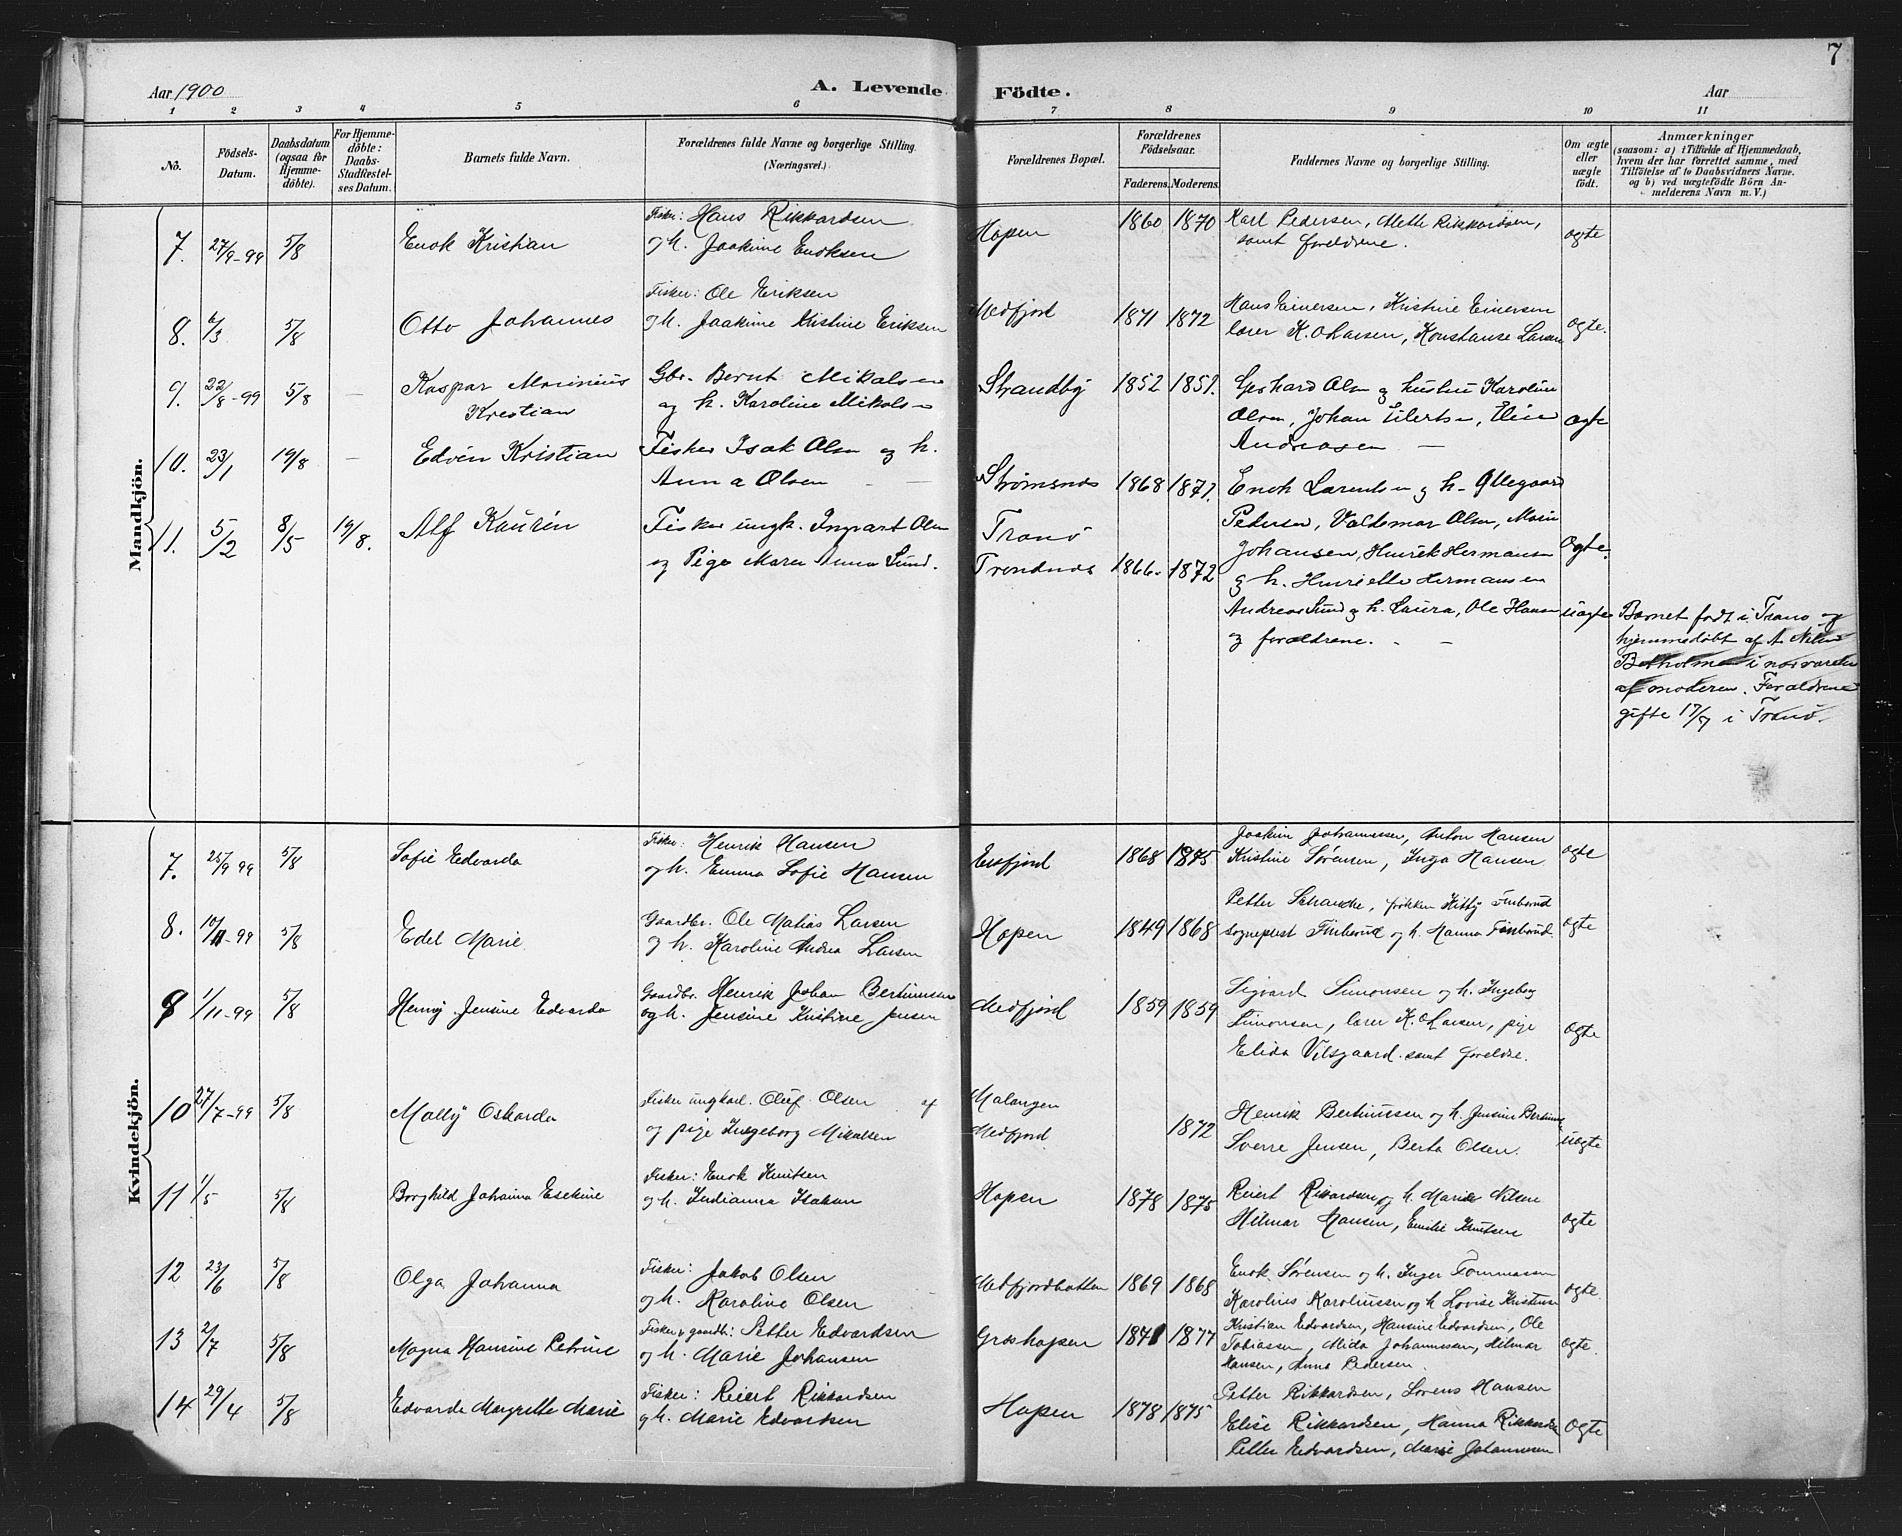 7
Aar 1900
A. Levende Födte.
Aar
1 2 3 4 5 6 7 8 9 10 11
No.
Födsels-Datum.
Daabsdatum (ogsaa for Hjemme-döbte).
For Hjemme-döbte: Daabs-Stadfæstel-ses Datum.
Barnets fulde Navn.
Forældrenes fulde Navne og borgerlige Stilling. (Næringsvei.)
Forældrenes Bopæl.
Forældrenes Födselsaar.
Faderens. Moderens.
Faddernes Navne og borgerlige Stilling.
Om ægte eller uægte födt.
Anmærkninger
(saasom: a) i Tilfælde af Hjemmedaab,
hvem der har forrettet samme, med
Tilföielse af to Daabsvidners Navne.
og b) ved uægtefödte Börn An-
melderens Navn m. V.)
Mandkjön.
7. 27/9-99 5/8 Enok Kristian Fisker: Hans Rikkardsen Hopen 1860 1870 Karl Pedersen, Mette Rikkardsen, ægte
og h. Joakime Enoksen samt foreldrene.
8. 6/3 5/8 Otto Johannes Fisker: Ole Eriksen Medfjord 1871 1872 Hans Einersen, Kristine Einersen ægte.
og h. Joakime Kristine Eriksen lærer K. O Larsen, Konstanse Larsen
9. 22/8-99 5/8 — Kaspar Marinius Gbr. Bernt Mikalsen Strandby 1852 1851. Gerhard Olsen og hustru Karoline
Kristian og h. Karoline Mikalsen Olsen, Johan Eilertsen, Eline ægte
Andreasen —
10. 23/1 19/8 — Edvin Kristian Fisker Isak Olsen og h. Strømsnes 1868 1871. Enok Larentsen og h. Ollegaard
Anna Olsen — Pedersen, Valdemar Olsen, Marie
11. 5/2 8/5 19/8. Alf Kaurin Fisker ungk. Ingvart Olsen Tranö Johansen, Henrik Hermansen ægte.
og Pige Maren Anna Sund. Trondnes 1866. 1872 og h. Henriette Hermansen
Andreas Sund og h. Laura, Ole Hansen uægte Barnet født i Tranö og
og forældrene. — hjemmedöbt af A. Nilsen
i nærværelse
af moderen. Forældrene
gifte 17/7 i Tranö.
Kvindekjön.
7. 25/9 99 5/8 Sofie Edvarda Fisker: Henrik Hansen Ersfjord 1868 1875 Joakim Johannessen, Anton Hansen ægte
og h. Emma Sofie Hansen Kristine Sørensen, Inga Hansen
8. 10/11-99 5/8 Edel Marie Gaardbr. Ole Matias Larsen Hopen 1849 1868 Petter Schancke, frøken Kitty Finberud ægte
og h. Karoline Andrea Larsen sogneprest Finberud og h. Hanna Finberud.
9 1/11-99 5/8 Henny Jensine Edvarda Gaardbr. Henrik Johan Bertiniussen Medfjord 1859 1859 Sigvard Simonsen og h. Ingeborg
og h. Jensine Kristine Jensen Simonsen, lærer K. O Larsen, pige ægte
Elida Vilsgaard samt foreldre.
10 27/7-99 5/8 Molly Oskarda Fisker ungkarl. Oluf Olsen af Malangen Henrik Bertiniussen og h. Jensine Bertinius uægte
og pige Ingeborg Mikalsen Medfjord 1872 Sverre Jensen, Berta Olsen.
11 1/5 5/8 Borghild Johanna Esekine Fisker: Enok Knutsen Hopen 1878 1875 Reiert Rikardsen og h. Marie Nilsen
og h. Indianna Isaksen Hilmar Hansen, Emilie Knutsen ægte
12 23/6 5/8 Olga Johanna Fisker: Jakob Olsen Medfjordbotten 1869 1868 Enok Sørensen og h. Inger Tommassen ægte.
og h. Karoline Olsen Karolius Karoliussen og h Lovise Kristiansen
13 2/7 5/8 Magna Hansine Petrine Fisker & gaardb: Petter Edvardsen Grashopen 1871 1877 Kristian Edvardsen, Hansine Edvardsen, Ole ægte.
og h. Marie Johansen Tobiassen, Mida Johannessen, Hilmar
Hansen, Anna Pedersen.
14 29/4 5/8 Edvarda Margrethe Marie Fisker: Reiert Rikkardsen Hopen 1878 1875 Petter Rikkardsen, Sørens Hansen
og h. Marie Edvardsen Elise Rikkardsen, Hanna Rikkardsen ægte
Petter Edvardsen, Marie Johannesen